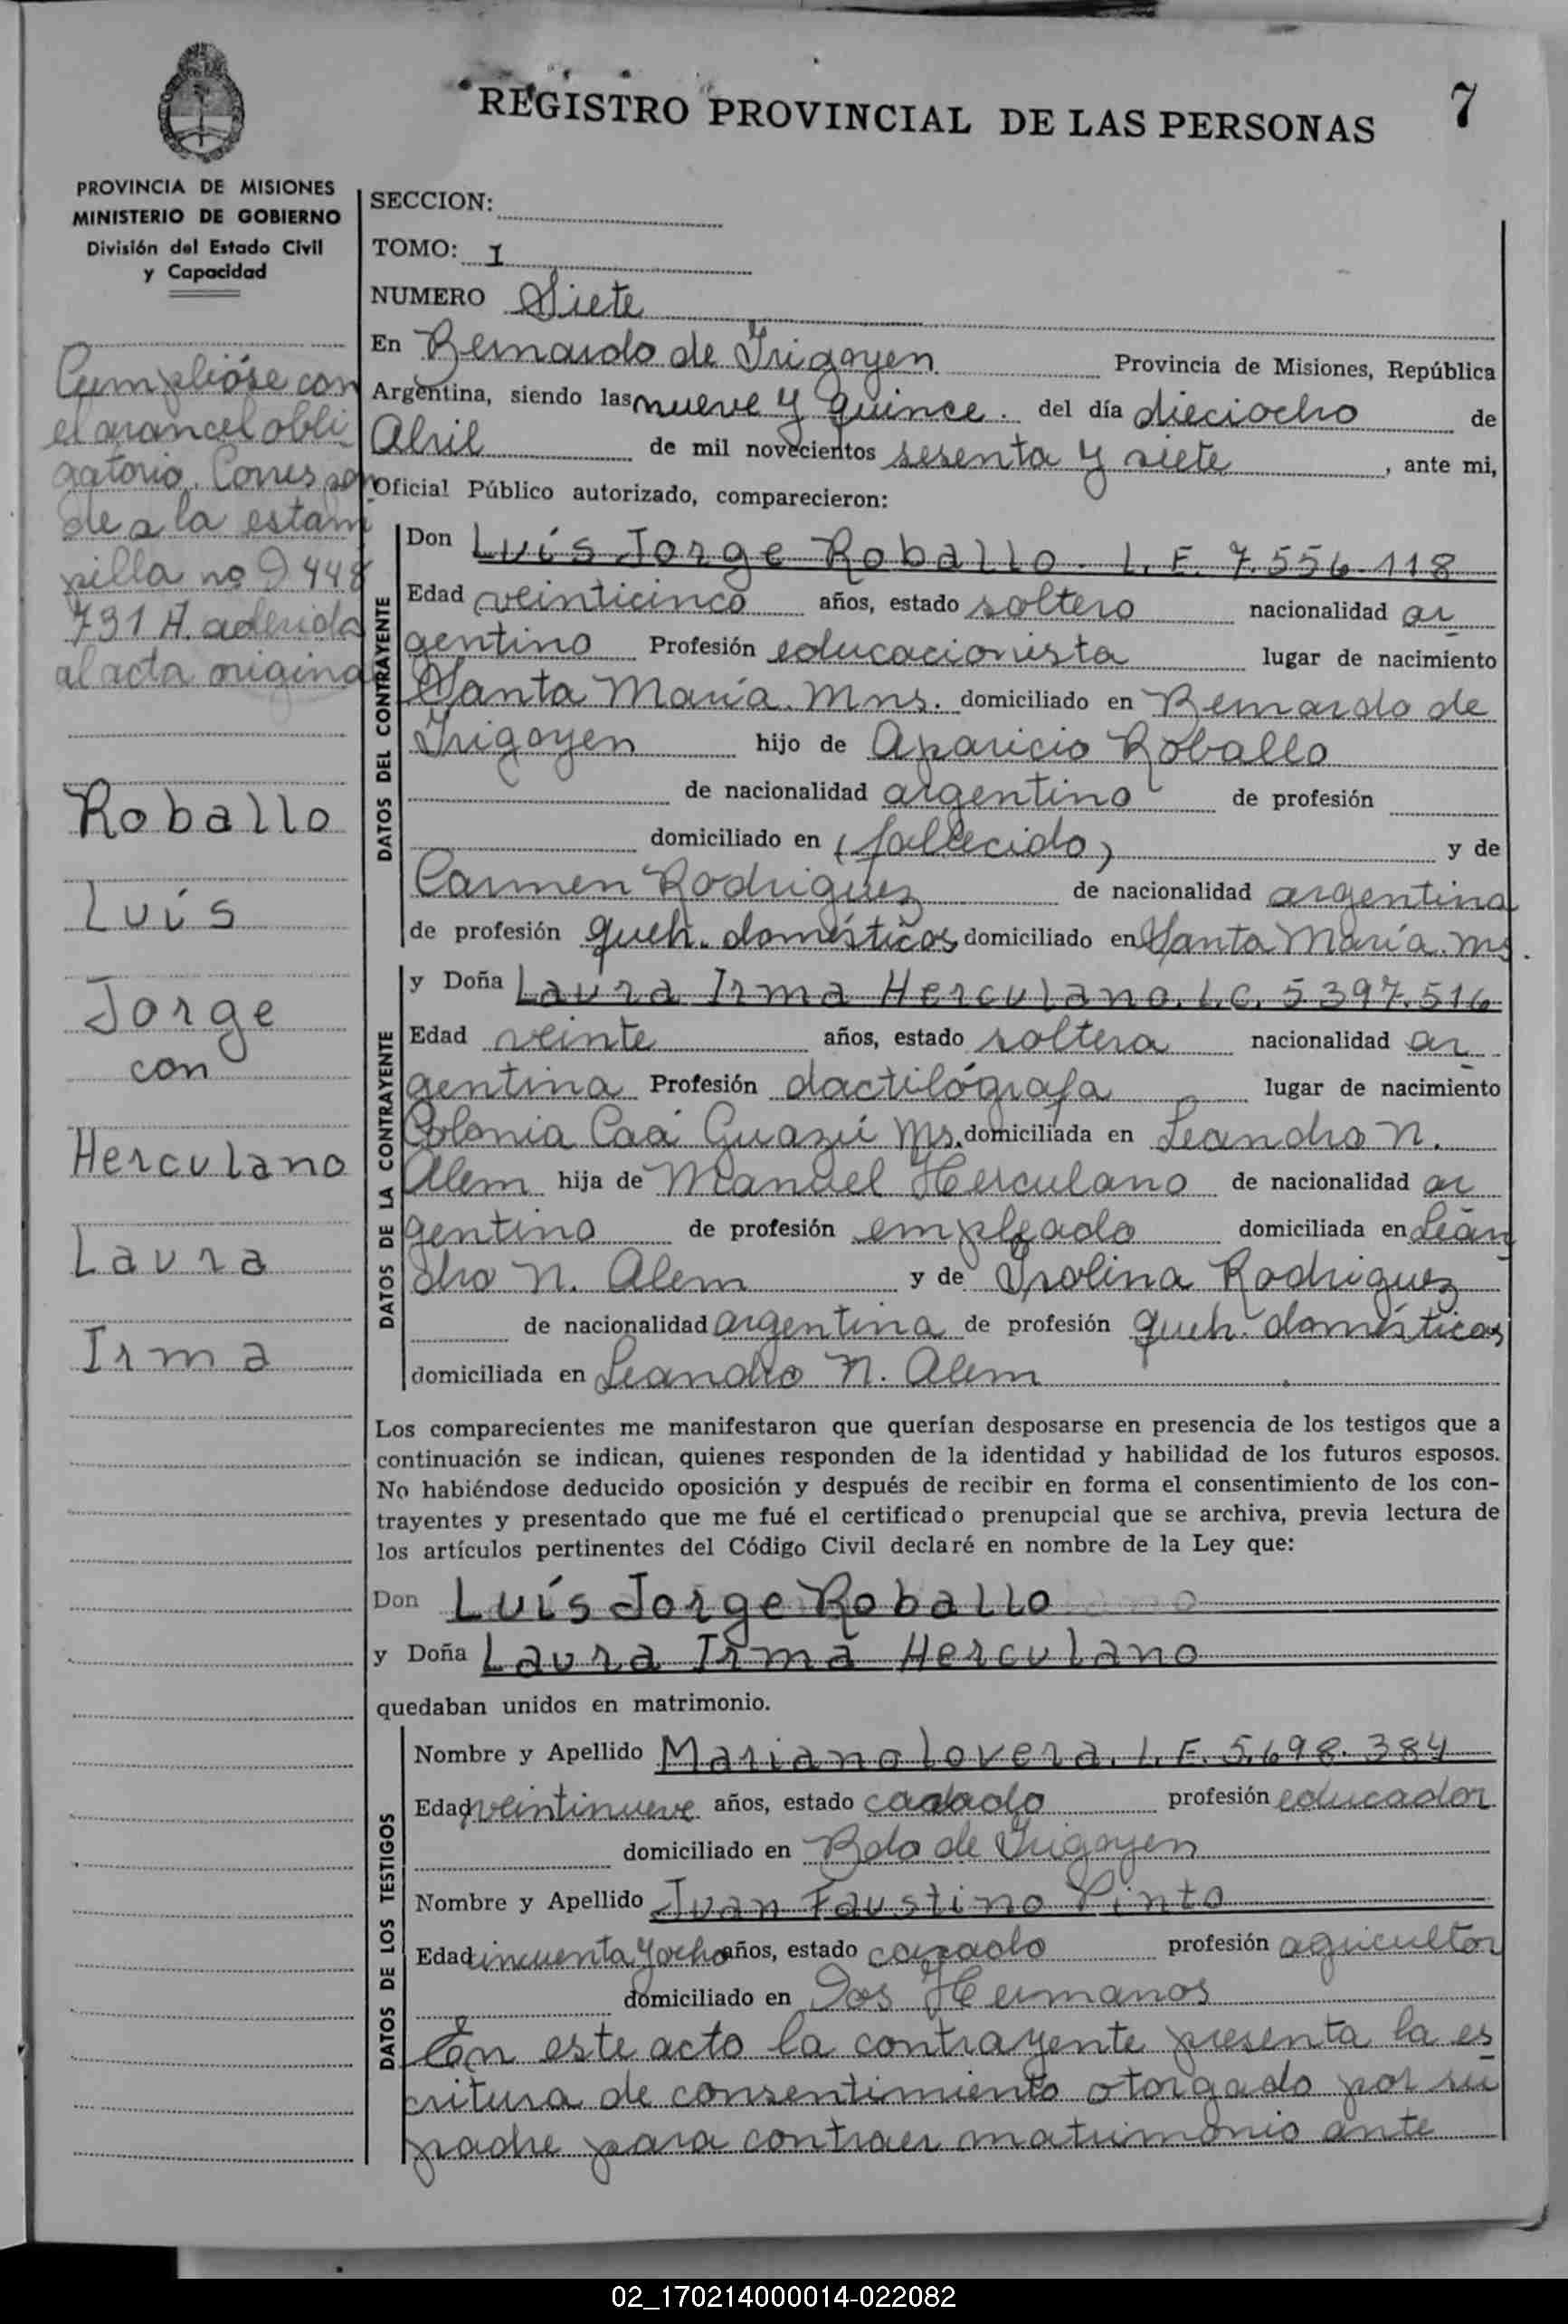 REGISTRO PROVINCIAL DE LAS PERSONAS
7
PROVINCIA DE MISIONES
MINISTERIO DE GOBIERNO
División del Estado Civil
y Capacidad
Cumplióse con
el arancel obli
gatorio. Corres pon
de a la estam
pilla no D 448
731 A. adherida
al acta origina
Roballo
Luís
Jorge
con
Herculano
Laura
Irma
SECCION:
TOMO: I
NUMERO Siete
En Bernardo de Irigoyen Provincia de Misiones, República
Argentina, siendo las nueve y quince. del día dieciocho de
Abril de mil novecientos sesenta y siete, ante mi,
Oficial Público autorizado, comparecieron:
DATOS DEL CONTRAYENTE
Don Luís Jorge Roballo. L. E. 7.556.118
Edad veinticinco años, estado soltero nacionalidad ar
gentino Profesión educacionista lugar de nacimiento
Santa María. Mns. domiciliado en Bernardo de
Irigoyen hijo de Aparicio Roballo
de nacionalidad argentino de profesión
domiciliado en (fallecido) y de
Carmen Rodriguez de nacionalidad argentina
de profesión queh. domésticos domiciliado en Santa María. Ms.
DATOS DE LA CONTRAYENTE
y Doña Laura Irma Herculano. L.C. 5.397.516
Edad veinte años, estado soltera nacionalidad ar
gentina Profesión dactilógrafa lugar de nacimiento
Colonia Caá Guazú Ms. domiciliada en Leandro N.
Alem hija de Manuel Herculano de nacionalidad ar
gentino de profesión empleado domiciliada en Lean
dro N. Alem y de Isolina Rodriguez
de nacionalidad argentina de profesión queh. domésticos
domiciliada en Leandro N. Alem
Los comparecientes me manifestaron que querían desposarse en presencia de los testigos que a
continuación se indican, quienes responden de la identidad y habilidad de los futuros esposos.
No habiéndose deducido oposición y después de recibir en forma el consentimiento de los con-
trayentes y presentado que me fué el certificado prenupcial que se archiva, previa lectura de
los artículos pertinentes del Código Civil declaré en nombre de la Ley que:
Don Luís Jorge Roballo
y Doña Laura Irma Herculano
quedaban unidos en matrimonio.
DATOS DE LOS TESTIGOS
Nombre y Apellido Mariano Lovera. L. E. 5.698.384
Edad veintinueve años, estado casado profesión educador
domiciliado en Bdo de Irigoyen
Nombre y Apellido Juan Faustino Pinto
Edad cincuenta y ocho años, estado casado profesión agricultor
domiciliado en Dos Hermanos
En este acto la contrayente presenta la es
critura de consentimiento otorgado por su
padre para contraer matrimonio ante
02_170214000014-022082